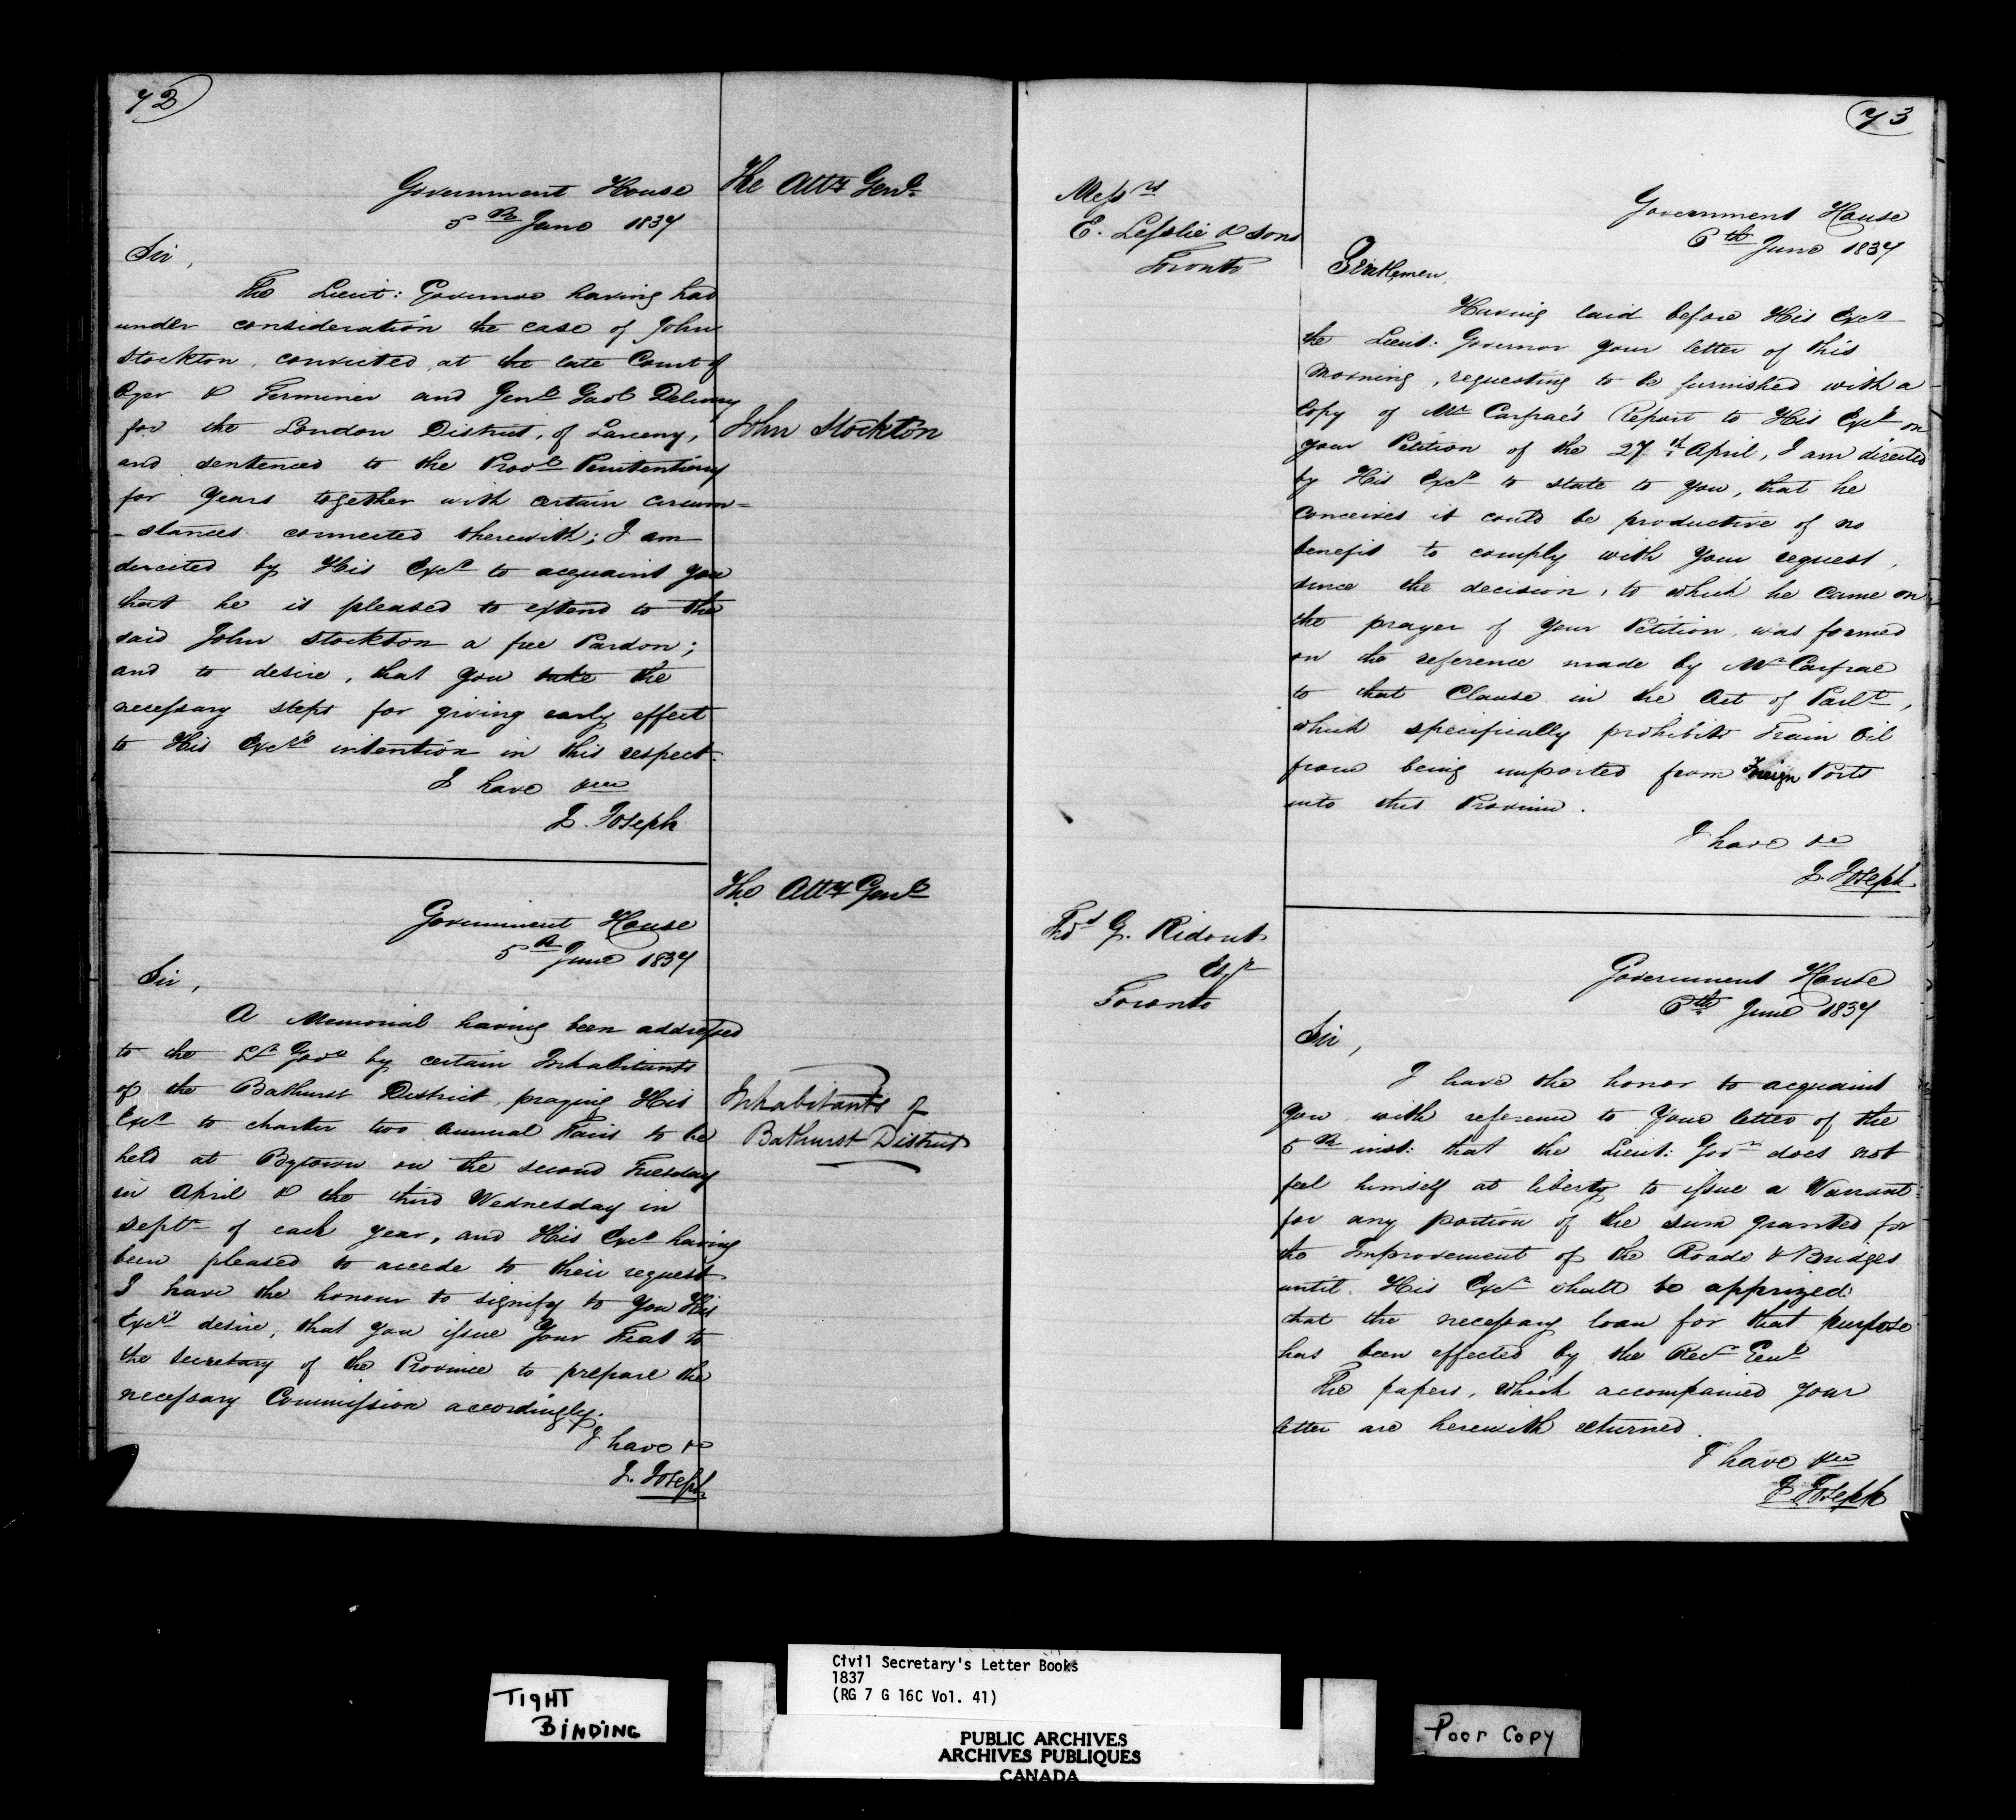 72
Government House
5th June 1837
The Atty Genl
Sir,
The Lieut: Governor having had
under consideration the case of John
Stockton, convicted, at the late Court of
Oyer & Terminer and Genl Gaol Delivery
for the London District, of Larceny,
John Stockton
and sentenced to the Provl Penitentiary
for years together with certain circum=
-stances connected therewith; I am
directed by His Excy to acquaint you
that he is pleased to extend to the
said John Stockton a free Pardon;
and to desire, that you take the
necessary steps for giving early effect
to His Excy's intention in this respect.
I have &c
J. Joseph
The Atty Genl
Government House
5th June 1837
Sir,
A Memorial having been addressed
to the Lt Govr by certain Inhabitants
of the Bathurst District, praying His
Inhabitants of
Bathurst District
Excy to charter two annual Fairs to be
held at Bytown on the second Tuesday
in April & the third Wednesday in
Septr of each year, and His Excy having
been pleased to accede to their request
I have the honour to signify to you His
Excy's desire, that you issue Your Fiat to
the Secretary of the Province to prepare the
necessary Commission accordingly.
I have &c
J. Joseph
73
Messrs
E. Lesslie & Sons
Toronto
Government House
6th June 1837
Gentlemen,
Having laid before His Excy
the Lieut: Governor your letter of this
Morning, requesting to be furnished with a
Copy of Mr Carfrae's Report to His Excy on
your Petition of the 27th April, I am directed
by His Excy to state to you, that he
conceives it could be productive of no
benefit to comply with your request,
since the decision, to which he came on
the prayer of your Petition, was formed
on the reference made by Mr Carfrae
to that Clause in the Act of Parlt,
which specifically prohibits Train Oil
from being imported from Foreign Ports
into this Province.
I have &c
J. Joseph
Thos G. Ridout
Esqr
Toronto
Government House
6th June 1837
Sir,
I have the honor to acquaint
you with reference to Your letter of the
5th inst: that the Lieut: Govr does not
feel himself at liberty to issue a Warrant
for any portion of the sum granted for
the Improvement of the Roads & Bridges
until His Excy shall be apprized
that the necessary loan for that purpose
has been effected by the Recr Genl
The papers, which accompanied your
letter are herewith returned.
I have &c
J. Joseph
TIGHT
BINDING
Civil Secretary's Letter Books
1837
(RG 7 G 16C Vol. 41)
PUBLIC ARCHIVES
ARCHIVES PUBLIQUES
CANADA
Poor Copy